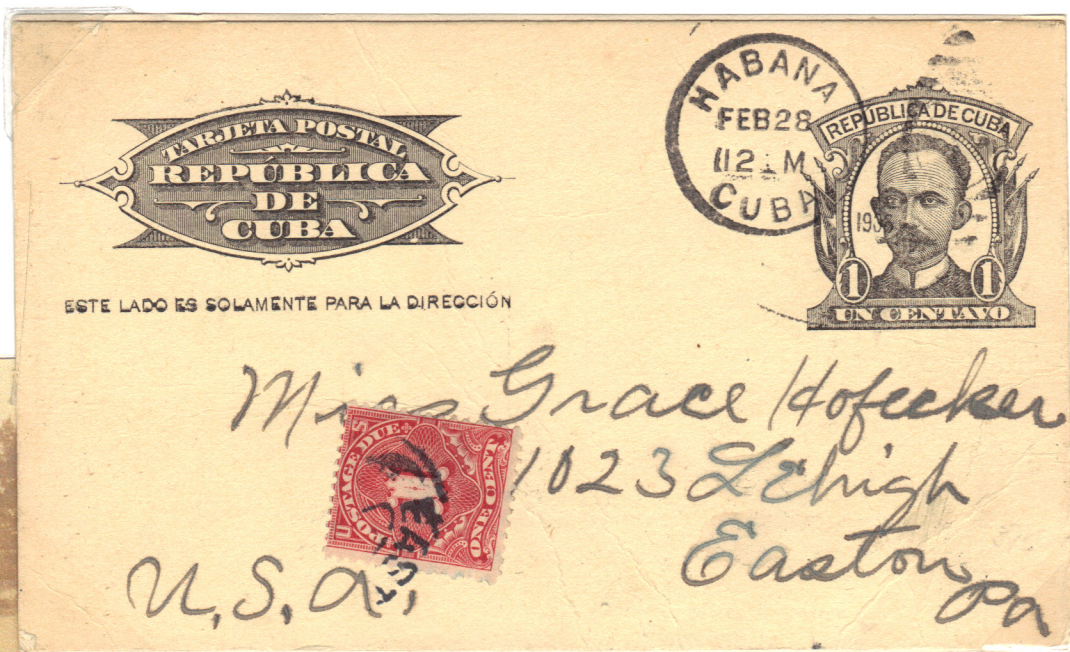 TARJETA POSTAL
REPÚBLICA
DE
CUBA
ESTE LADO ES SOLAMENTE PARA LA DIRECCIÓN
HABANA
FEB 28
12 M
CUBA
REPUBLICA DE CUBA
1 1
UN CENTAVO
Miss Grace Hofecker
1023 Lehigh
Easton
Pa
U.S.A.
U S
POSTAGE DUE
ONE CENT